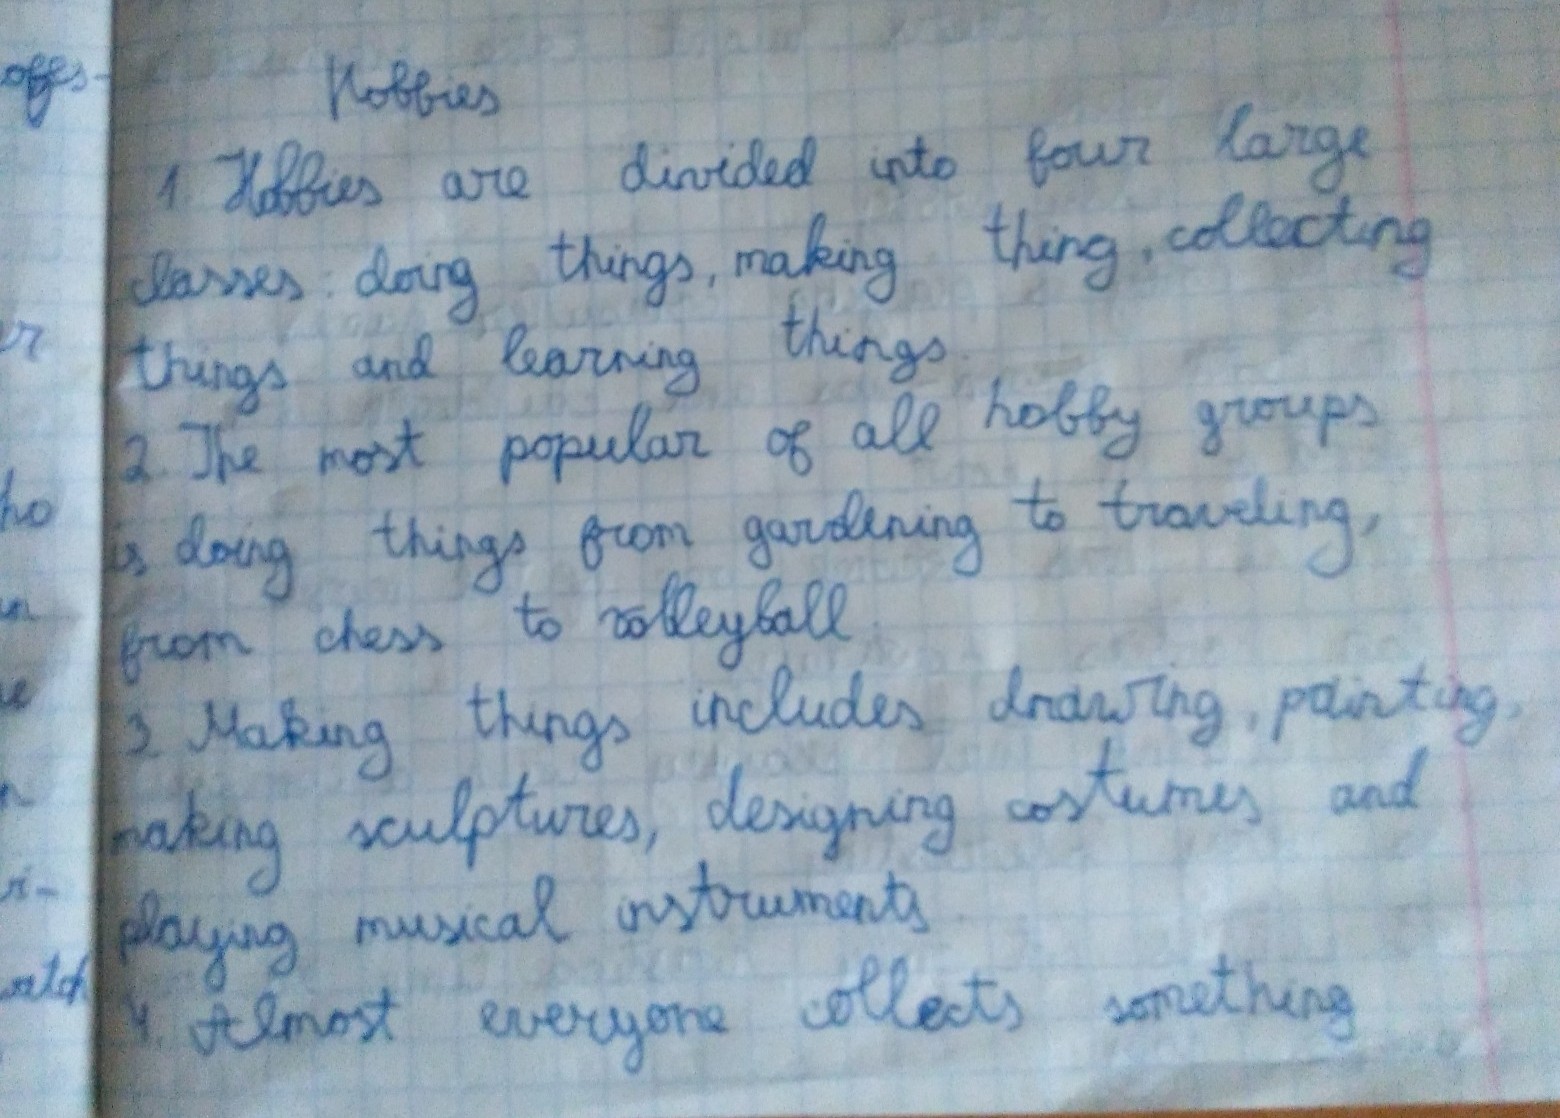 offs-
Hobbies
1. Hobbies are divided into four large
classes: doing things, making thing, collecting
things and learning things.
2. The most popular of all hobby groups
is doing things from gardening to traveling,
from chess to volleyball.
3. Making things includes drawing, painting,
making sculptures, designing costumes and
playing musical instruments
4. Almost everyone collects something